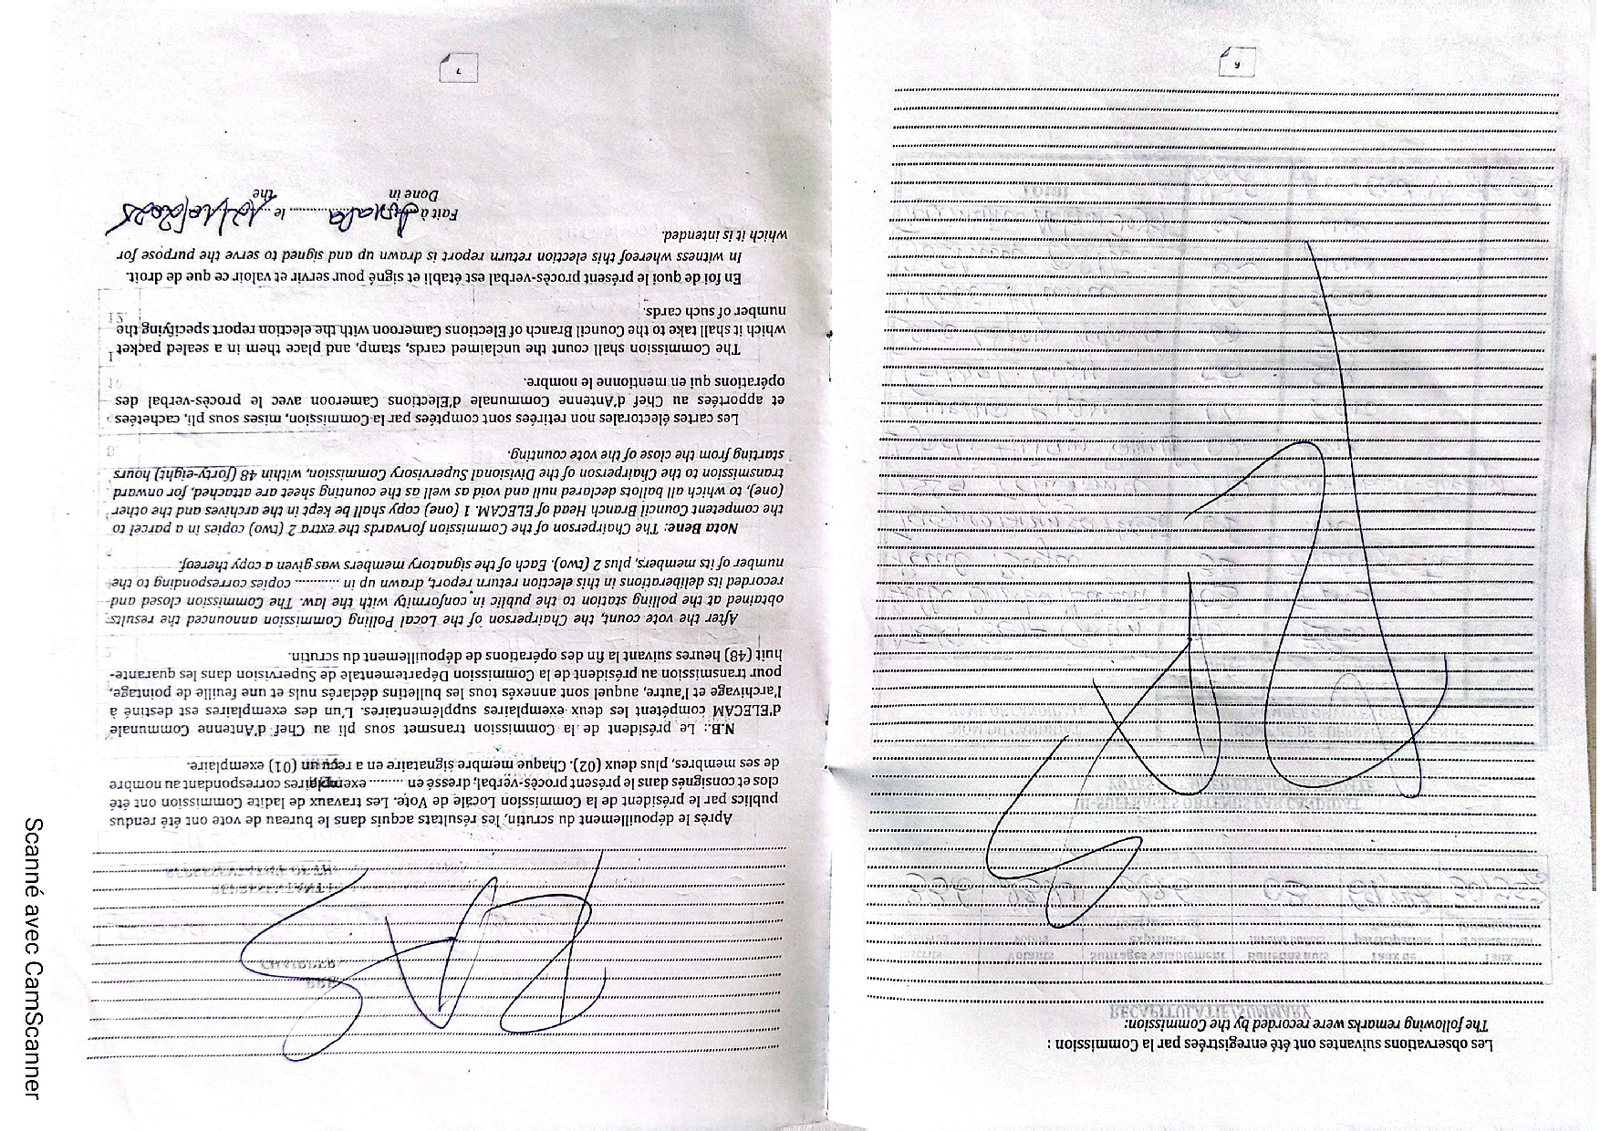 Les observations suivantes ont été enregistrées par la Commission :
The following remarks were recorded by the Commission:
RAS
6
RAS
Après le dépouillement du scrutin, les résultats acquis dans le bureau de vote ont été rendus
publics par le président de la Commission Locale de Vote. Les travaux de ladite Commission ont été
clos et consignés dans le présent procès-verbal, dressé en ......... exemplaires correspondant au nombre
de ses membres, plus deux (02). Chaque membre signataire en a reçu un (01) exemplaire.
N.B.: Le président de la Commission transmet sous pli au Chef d'Antenne Communale
d'ELECAM compétent les deux exemplaires supplémentaires. L'un des exemplaires est destiné à
l'archivage et l'autre, auquel sont annexés tous les bulletins déclarés nuls et une feuille de pointage,
pour transmission au président de la Commission Départementale de Supervision dans les quarante-
huit (48) heures suivant la fin des opérations de dépouillement du scrutin.
After the vote count, the Chairperson of the Local Polling Commission announced the results
obtained at the polling station to the public in conformity with the law. The Commission closed and
recorded its deliberations in this election return report, drawn up in ............ copies corresponding to the
number of its members, plus 2 (two). Each of the signatory members was given a copy thereof.
Nota Bene: The Chairperson of the Commission forwards the extra 2 (two) copies in a parcel to
the competent Council Branch Head of ELECAM. 1 (one) copy shall be kept in the archives and the other
(one), to which all ballots declared null and void as well as the counting sheet are attached, for onward
transmission to the Chairperson of the Divisional Supervisory Commission, within 48 (forty-eight) hours
starting from the close of the vote counting.
Les cartes électorales non retirées sont comptées par la Commission, mises sous pli, cachetées
et apportées au Chef d'Antenne Communale d'Elections Cameroon avec le procès-verbal des
opérations qui en mentionne le nombre.
The Commission shall count the unclaimed cards, stamp, and place them in a sealed packet
which it shall take to the Council Branch of Elections Cameroon with the election report specifying the
number of such cards.
En foi de quoi le présent procès-verbal est établi et signé pour servir et valoir ce que de droit.
In witness whereof this election return report is drawn up and signed to serve the purpose for
which it is intended.
Fait à le 12/10/2025
Done in the
7
Scanné avec CamScanner